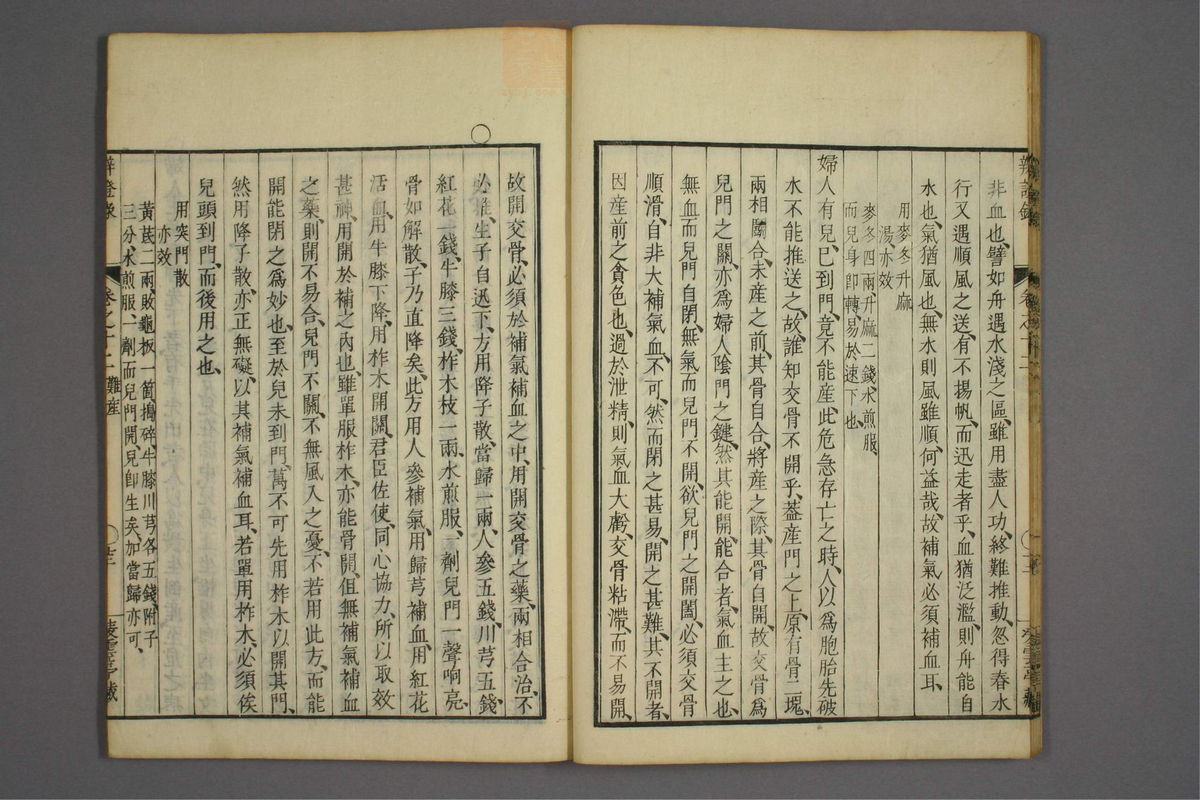 非血也、譬如舟遇水淺之區、雖用盡人功、終難推動、忽得春水
行又遇順風之送、有不揚帆、而迅走者乎、血猶泛濫則舟能自
水也、氣猶風也、無水則風雖順、何益哉、故補氣必須補血耳、
用麥冬升麻
湯、亦效
麥冬四兩、升麻二錢、水煎服、
而兒身卽轉、易於速下也、
婦人有兒已到門、竟不能產、此危急存亡之時、人以爲胞胎先破
水不能推送之、故誰知交骨不開乎、葢産門之上、原有骨二塊、
兩相鬬合、未産之前、其骨自合、將産之際、其骨自開、故交骨爲
兒門之關、亦爲婦人陰門之鍵、然其能開、能合者、氣血主之也、
無血而兒門自閉、無氣而兒門不開、欲兒門之開闔、必須交骨
順滑、自非大補氣血、不可、然而閉之甚易、開之甚難、其不開者、
因産前之貪色也、過於泄精、則氣血大虧、交骨粘滯、而不易開、
故開交骨、必須於補氣補血之中、用開交骨之藥、兩相合治、不
必催生、子自迅下、方用降子散、當歸一兩、人參五錢、川芎五錢、
紅花一錢、牛膝三錢、柞木枝一兩、水煎服、一劑兒門一聲响亮、
骨如解散、子乃直降矣、此方用人參補氣、用歸芎補血、用紅花
活血、用牛膝下降、用柞木開關、君臣佐使、同心協力、所以取效
甚神、用開於補之內也、雖單服柞木、亦能骨開、但無補氣補血
之藥、則開不易合、兒門不關、不無風入之憂、不若用此方、而能
開能閉之爲妙也、至於兒未到門、萬不可先用柞木以開其門、
然用降子散、亦正無礙、以其補氣補血耳、若單用柞木、必須俟
兒頭到門、而後用之也、
用突門散
亦效
黃芪二兩、敗龜板一箇、搗碎、牛膝川芎各五錢、附子
三分、水煎服、一劑而兒門開、兒卽生矣、加當歸亦可、
辨證錄
卷之十二難產